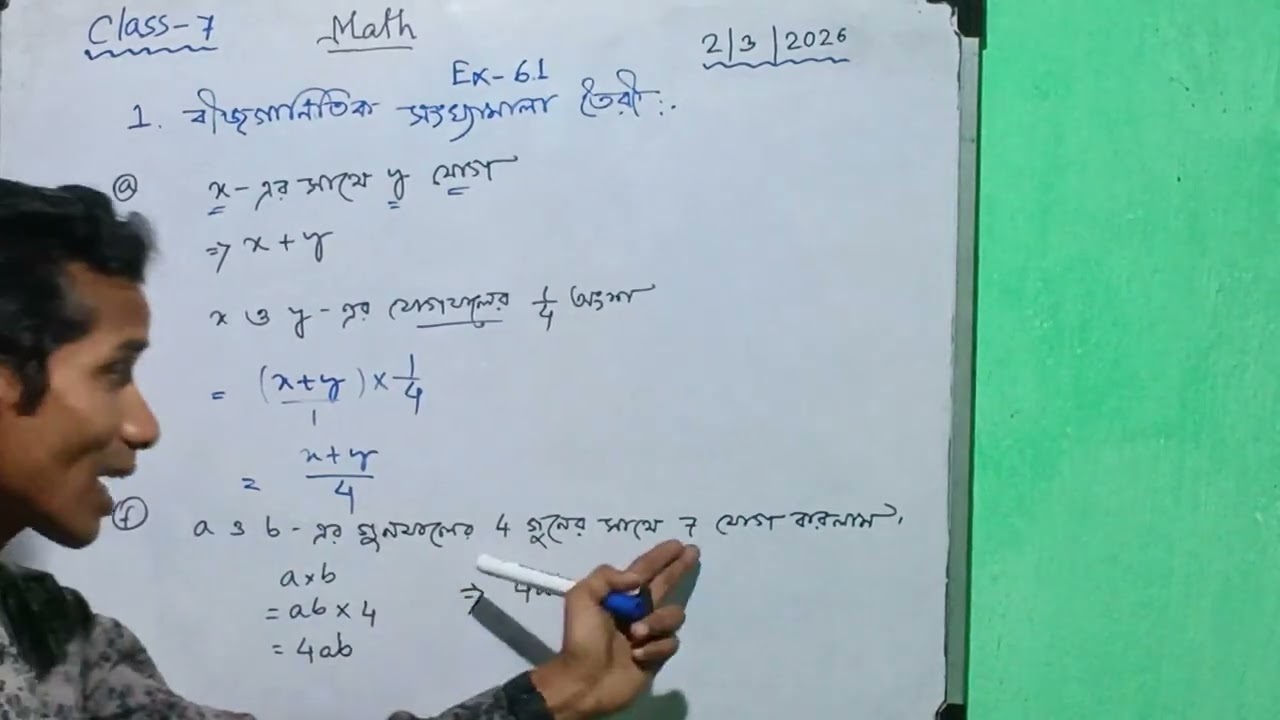 Class-7 Math 2/3/2026
Ex-6.1
1. বীজগানিতিক সংখ্যামালা তৈরী:.
ⓐ x-এর সাথে y যোগ
⇒ x + y
x ও y-এর যোগফলের 1/4 অংশ
= (x+y)/1 × 1/4
= x+y/4
ⓕ a ও b-এর গুনফলের 4 গুনের সাথে 7 যোগ করলাম,
a×b
= ab × 4 ⇒
= 4ab